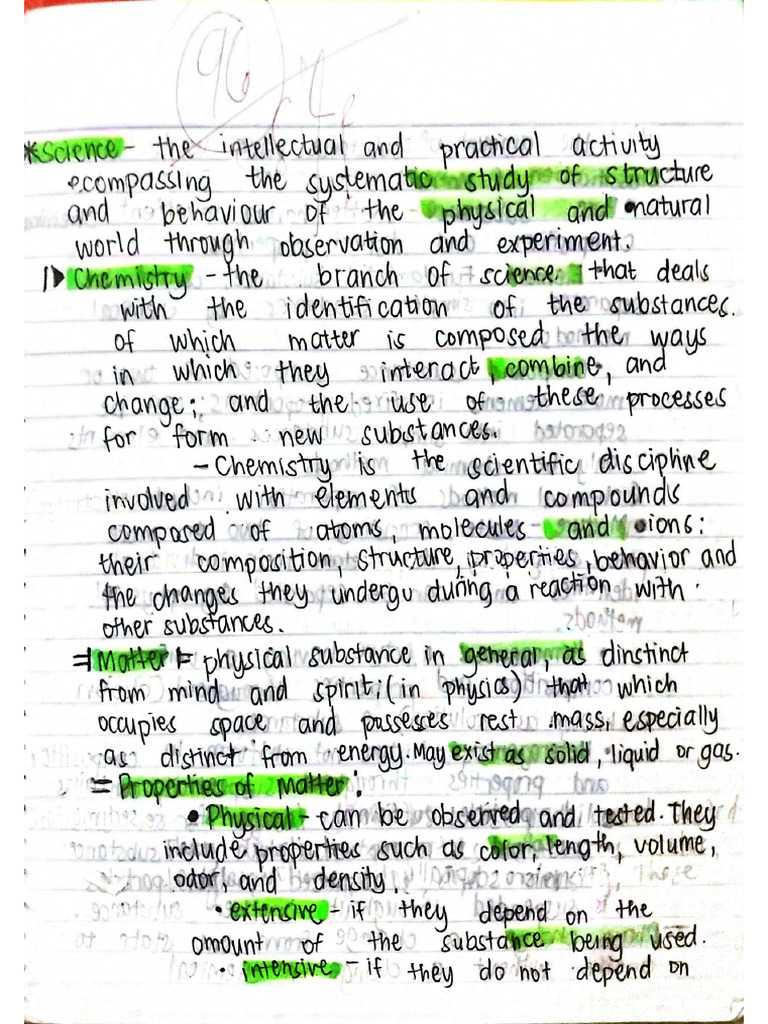 96
*Science - the intellectual and practical activity
ecompassing the systematic study of structure
and behaviour of the physical and natural
world through observation and experiment.
Chemistry - the branch of science that deals
with the identification of the substances.
of which matter is composed the ways
in which they interact, combine, and
change; and the use of these processes
for form new substances.
- Chemistry is the scientific discipline
involved with elements and compounds
composed of atoms, molecules and ions:
their composition, structure, properties, behavior and
the changes they undergu during a reaction with
other substances.
Matter = physical substance in general, as dinstinct
from mind and spirit; (in physics) that which
occupies space and passeses rest mass, especially
as distinct from energy. May exist as solid, liquid or gas.
= Properties of Matter:
• Physical - can be observed and tested. They
include properties such as color, length, volume,
odor, and density.
• extensive - if they depend on the
amount of the substance being used.
• intensive - if they do not depend on